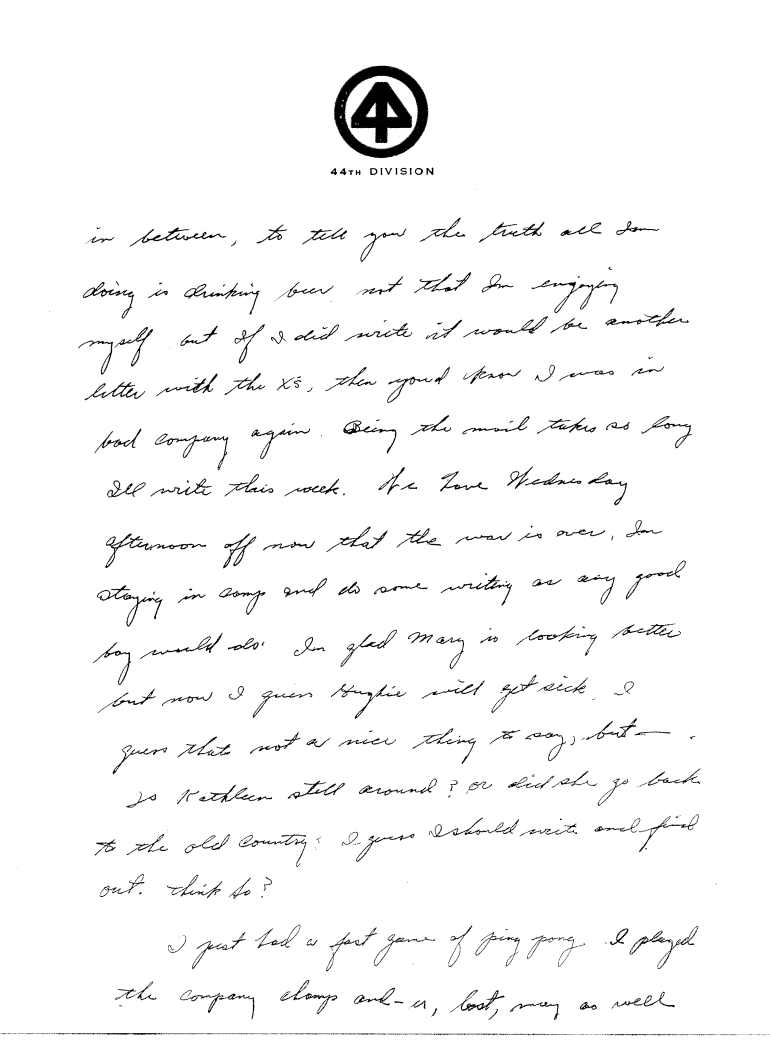 44TH DIVISION
in between, to tell you the truth all Im
doing is drinking beer not that Im enjoying
myself but If I did write it would be another
letter with the X's, then youd know I was in
bad company again. Being the mail takes so long
Ill write this week. We have Wednesday
afternoon off now that the war is over, Im
staying in camp and do some writing as any good
boy would do. Im glad Mary is looking better
but now I guess Hughie will get sick. I
guess thats not a nice thing to say, but — .
Is Kathleen still around? or did she go back
to the old country? I guess I should write and find
out. Think so?
I just had a fast game of ping pong. I played
the company champ and - er, lost, may as well